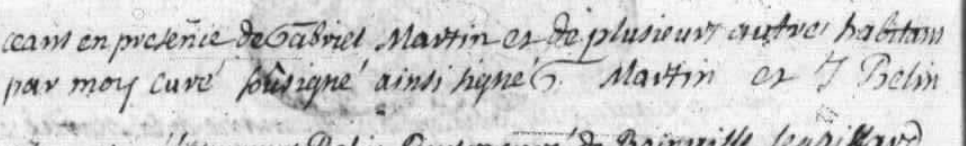 ceans en presence de Gabriel Martin et de plusieurs autres habitans
par moy curé soûsigné ainsi signé G. Martin et J Belin
Belin de Boinville